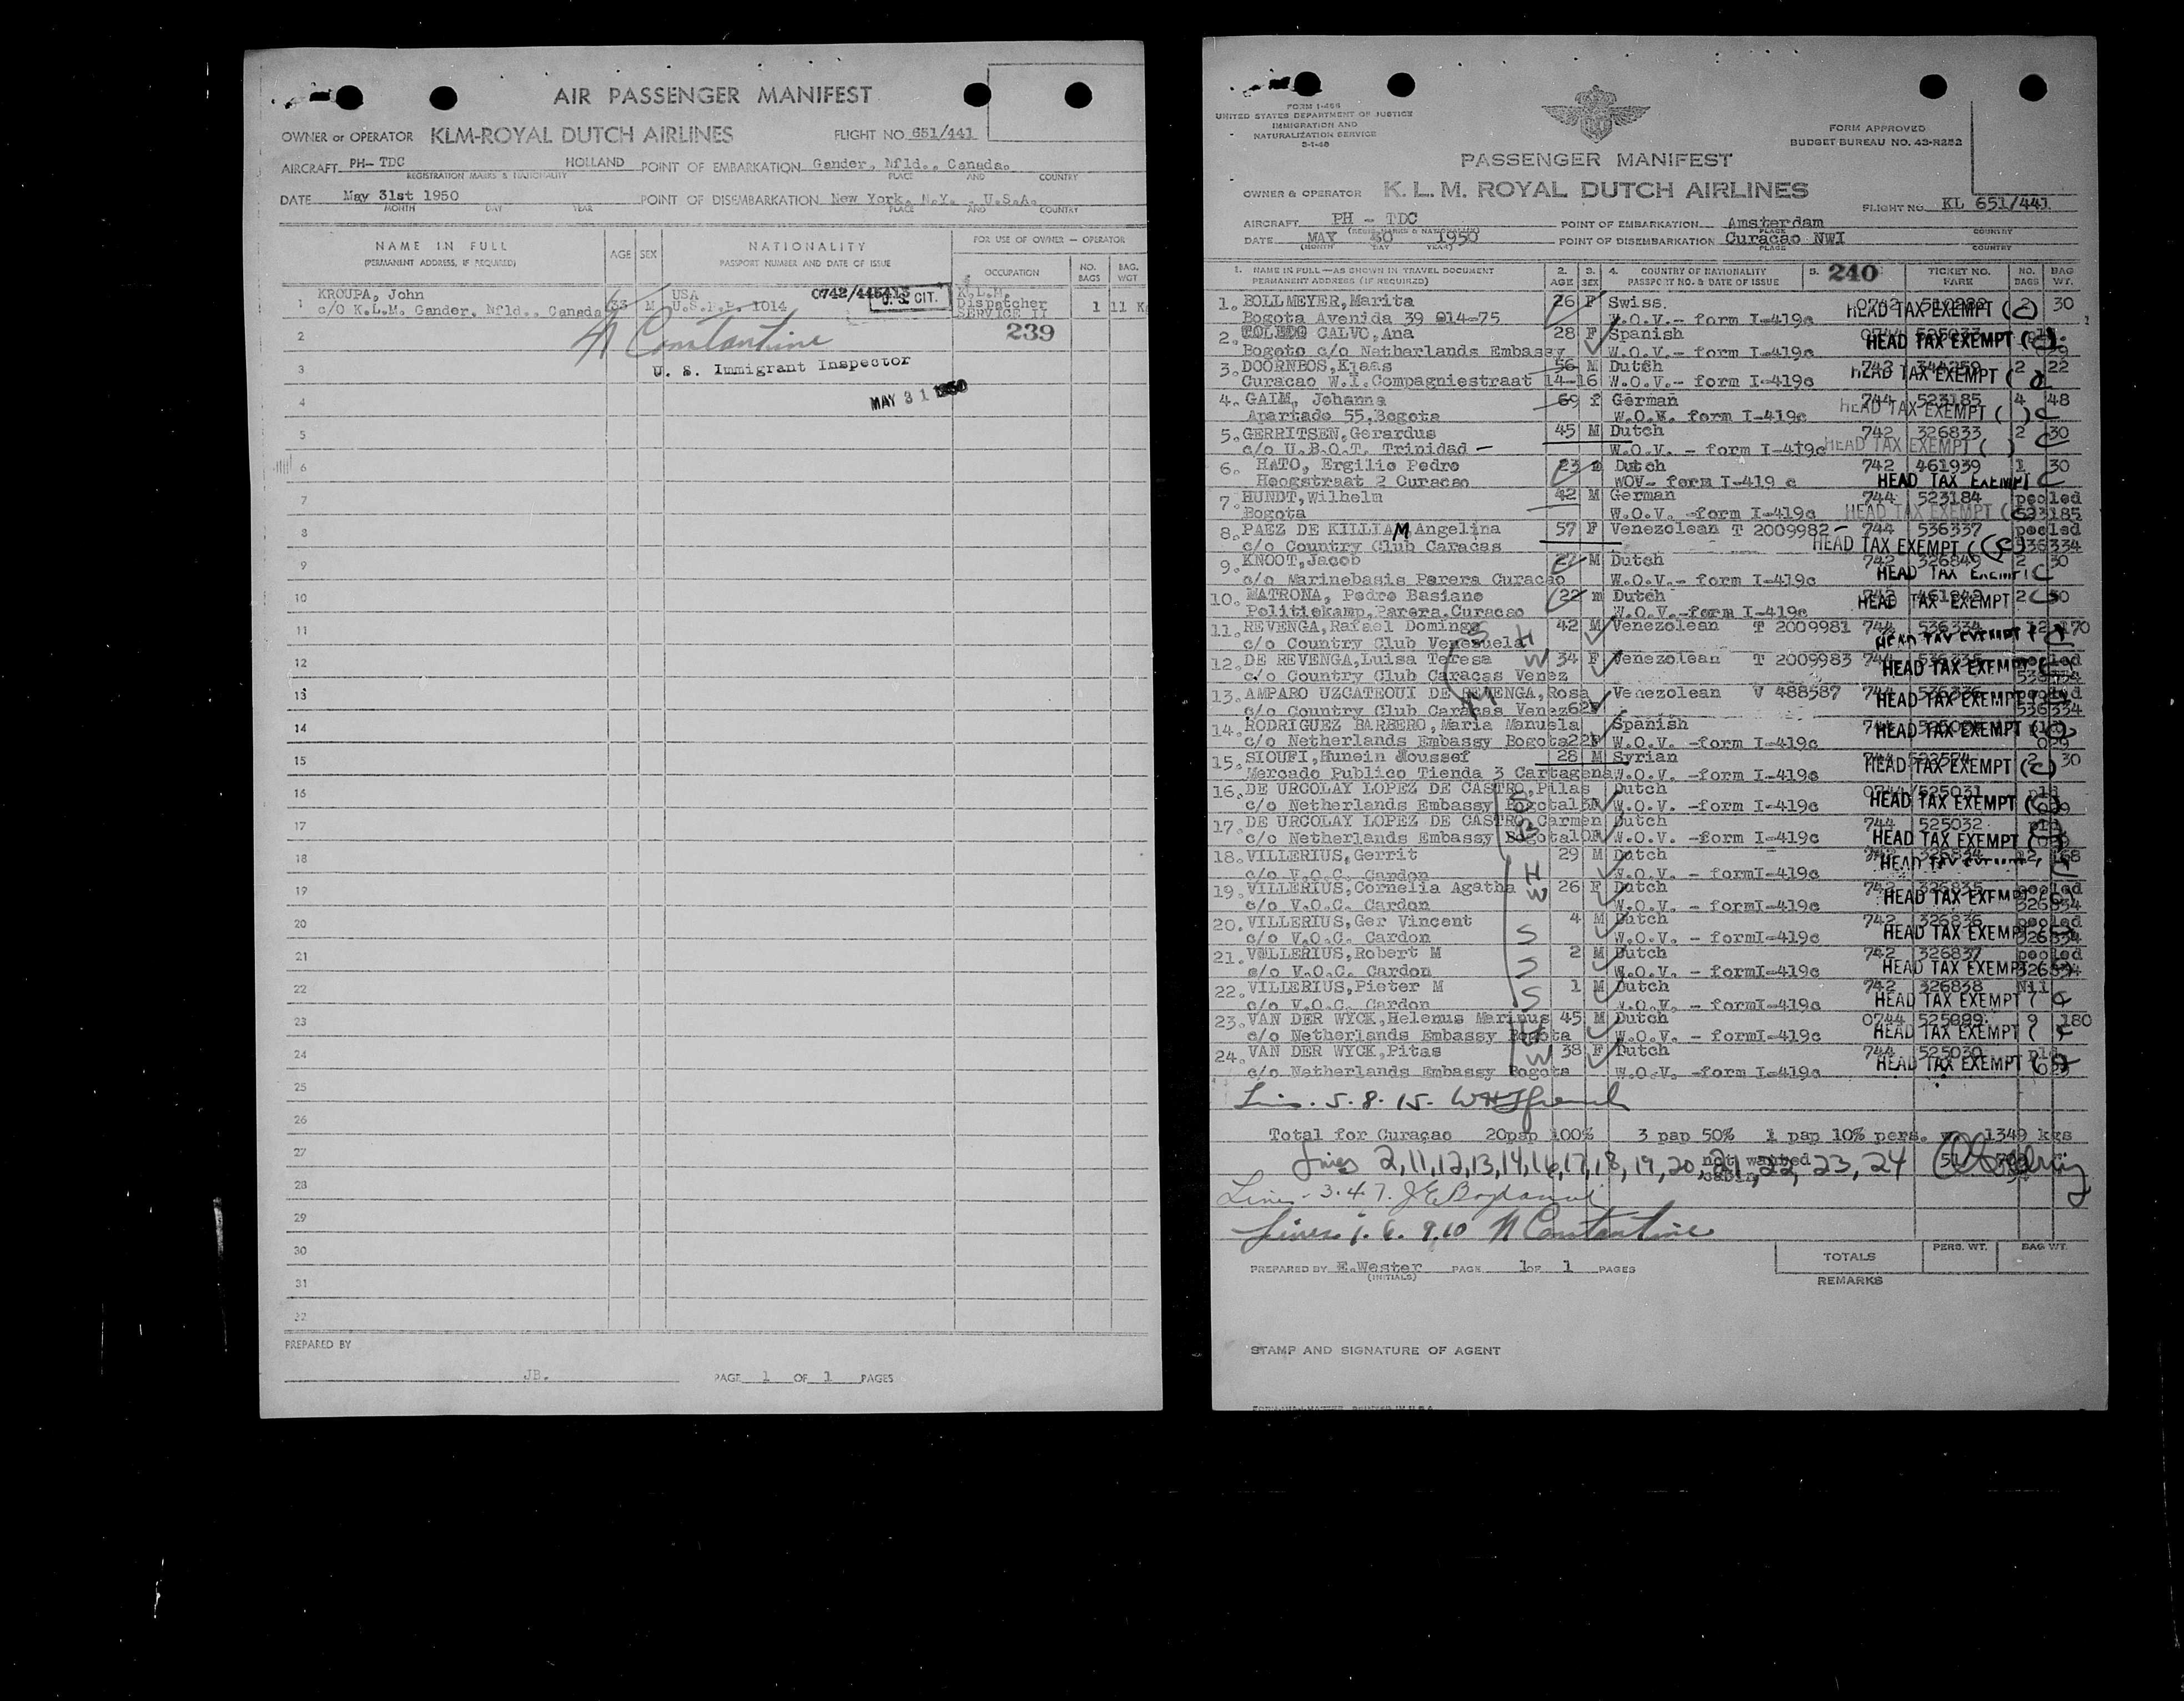 AIR PASSENGER MANIFEST
OWNER or OPERATOR KLM-ROYAL DUTCH AIRLINES FLIGHT NO. 651/441
AIRCRAFT PH- TDC HOLLAND POINT OF EMBARKATION Gander, Nfld., Canada.
REGISTRATION MARKS & NATIONALITY PLACE AND COUNTRY
DATE May 31st 1950 POINT OF DISEMBARKATION New York, N.Y. , U.S.A.
MONTH DAY YEAR PLACE AND COUNTRY
NAME IN FULL AGE SEX NATIONALITY FOR USE OF OWNER — OPERATOR
(PERMANENT ADDRESS, IF REQUIRED) PASSPORT NUMBER AND DATE OF ISSUE OCCUPATION NO. BAGS BAG. WGT
1 KROUPA, John 33 M USA U. S. CIT. K.L.M.
c/O K.L.M. Gander, Nfld., Canada U.S.P.P. 1014 Dispatcher 1 11 K
SERVICE II
2 N Constantine 239
3 U. S. Immigrant Inspector
4 MAY 31 1950
5
6
7
8
9
10
11
12
13
14
15
16
17
18
19
20
21
22
23
24
25
26
27
28
29
30
31
32
PREPARED BY
JB. PAGE 1 OF 1 PAGES
FORM I-466
UNITED STATES DEPARTMENT OF JUSTICE
IMMIGRATION AND
NATURALIZATION SERVICE
FORM APPROVED
BUDGET BUREAU NO. 43-R252
PASSENGER MANIFEST
OWNER & OPERATOR K. L. M. ROYAL DUTCH AIRLINES FLIGHT NO. KL 651/441
AIRCRAFT PH - TDC POINT OF EMBARKATION Amsterdam
DATE MAY 30 1950 POINT OF DISEMBARKATION Curaçao NWI
(MONTH DAY YEAR) PLACE COUNTRY
1. NAME IN FULL—AS SHOWN IN TRAVEL DOCUMENT 2. 3. 4. COUNTRY OF NATIONALITY 5. 240 TICKET NO. NO. BAG
PERMANENT ADDRESS (IF REQUIRED) AGE SEX PASSPORT NO. & DATE OF ISSUE BAGS WT.
1. BOLLMEYER, Marita 26 F Swiss. 2 30
Bogota Avenida 39 14-75 W.O.V.- form I-419c HEAD TAX EXEMPT (c)
2. TOLEDO CALVO, Ana 28 F Spanish
Bogoto c/o Netherlands Embassy W.O.V.- form I-419c HEAD TAX EXEMPT (c)
3. DOORNBOS, Klaas 56 M Dutch 742 2 22
Curacao W.I.Compagniestraat 14-16 W.O.V.- form I-419c HEAD TAX EXEMPT (
4. GAIM, Johanna 69 f German 744 523185 4 48
Apartado 55,Bogota W.O.V. form I-419c HEAD TAX EXEMPT ( ) C
5. GERRITSEN, Gerardus 45 M Dutch 742 326833 2 30
c/o U.B.O.T. Trinidad - W.O.V. - form I-419c HEAD TAX EXEMPT ( ) C
6. HATO, Ergilio Pedro 23 m Dutch 742 461939 1 30
Hoogstraat 2 Curacao WOV- form I-419 c HEAD TAX EXEMPT C
7. HUNDT, Wilhelm 42 M German 744 523184 pooled
Bogota W.O.V. -form I-419c HEAD TAX EXEMPT ( 523185
8. PAEZ DE KILLIAM Angelina 57 F Venezolean T 2009982 - 744 536337 pooled
c/o Country Club Caracas HEAD TAX EXEMPT (C) 536334
9. KNOOT, Jacob 27 M Dutch 742 326849 2 30
c/o Marinebasis Parera Curacao W.O.V.- form I-419c HEAD TAX EXEMPT C
10. MATRONA, Pedro Basiano 22 m Dutch 2 30
Politiekamp, Parera, Curacao W.O.V.-form I-419c HEAD TAX EXEMPT C
11. REVENGA, Rafael Domingo H 42 M Venezolean T 2009981 744 536334 12 170
c/o Country Club Venezuela HEAD TAX EXEMPT
12. DE REVENGA, Luisa Teresa W 34 F Venezolean T 2009983 744 536335 pooled
c/o Country Club Caracas Venez HEAD TAX EXEMPT 536334
13. AMPARO UZCATEQUI DE REVENGA, Rosa Venezolean V 488587 744 536336 pooled
c/o Country Club Caracas Venez 62F HEAD TAX EXEMPT 536334
14. RODRIGUEZ BARBERO, Maria Manuela Spanish 744
c/o Netherlands Embassy Bogota 22F W.O.V. -form I-419c HEAD TAX EXEMPT 029
15. SIOUFI, Hunein Moussef 28 M Syrian 2 30
Mercado Publico Tienda 3 Cartagena W.O.V. -form I-419c HEAD TAX EXEMPT (C)
16. DE URCOLAY LOPEZ DE CASTRO, Pilas Dutch 0744/525031 pld
c/o Netherlands Embassy Bogota W.O.V. -form I-419c HEAD TAX EXEMPT (C)
17. DE URCOLAY LOPEZ DE CASTRO, Carmen Dutch 744 525032 pld
c/o Netherlands Embassy Bogota 10F W.O.V. -form I-419c HEAD TAX EXEMPT
18. VILLERIUS, Gerrit H 29 M Dutch 742 326834 12 168
c/o V.O.C. Cardon W.O.V. - formI-419c HEAD TAX EXEMPT
19. VILLERIUS, Cornelia Agatha W 26 F Dutch 742 326835 pooled
c/o V.O.C. Cardon W.O.V. - formI-419c HEAD TAX EXEMPT 326834
20. VILLERIUS, Ger Vincent 4 M Dutch 742 326836 pooled
c/o V.O.C. Cardon S W.O.V. - formI-419c HEAD TAX EXEMPT 326834
21. VILLERIUS, Robert M 2 M Dutch 742 326837 pooled
c/o V.O.C. Cardon S W.O.V. - formI-419c HEAD TAX EXEMPT 326834
22. VILLERIUS, Pieter M 1 M Dutch 742 326838 Nil
c/o V.O.C. Cardon S W.O.V. - formI-419c HEAD TAX EXEMPT (
23. VAN DER WYCK, Helenus Marinus 45 M Dutch 0744 9 180
c/o Netherlands Embassy Bogota H W.O.V. - formI-419c HEAD TAX EXEMPT (
24. VAN DER WYCK, Pitas W 38 F Dutch 744 525030 pld
c/o Netherlands Embassy Bogota W.O.V. -form I-419c HEAD TAX EXEMPT (
5. 8. 15.
Total for Curaçao 20pap 100% 3 pap 50% 1 pap 10% pers. w. 1349 kgs
Lines 2,11,12,13,14,16,17,18, 19, 20, 21, 22, 23, 24
Lines - 3. 4. 7.
Lines 1. 6. 9. 10 N Constantine
PREPARED BY E.Wester PAGE 1 OF 1 PAGES
(INITIALS)
TOTALS PERS. WT. BAG WT.
REMARKS
STAMP AND SIGNATURE OF AGENT